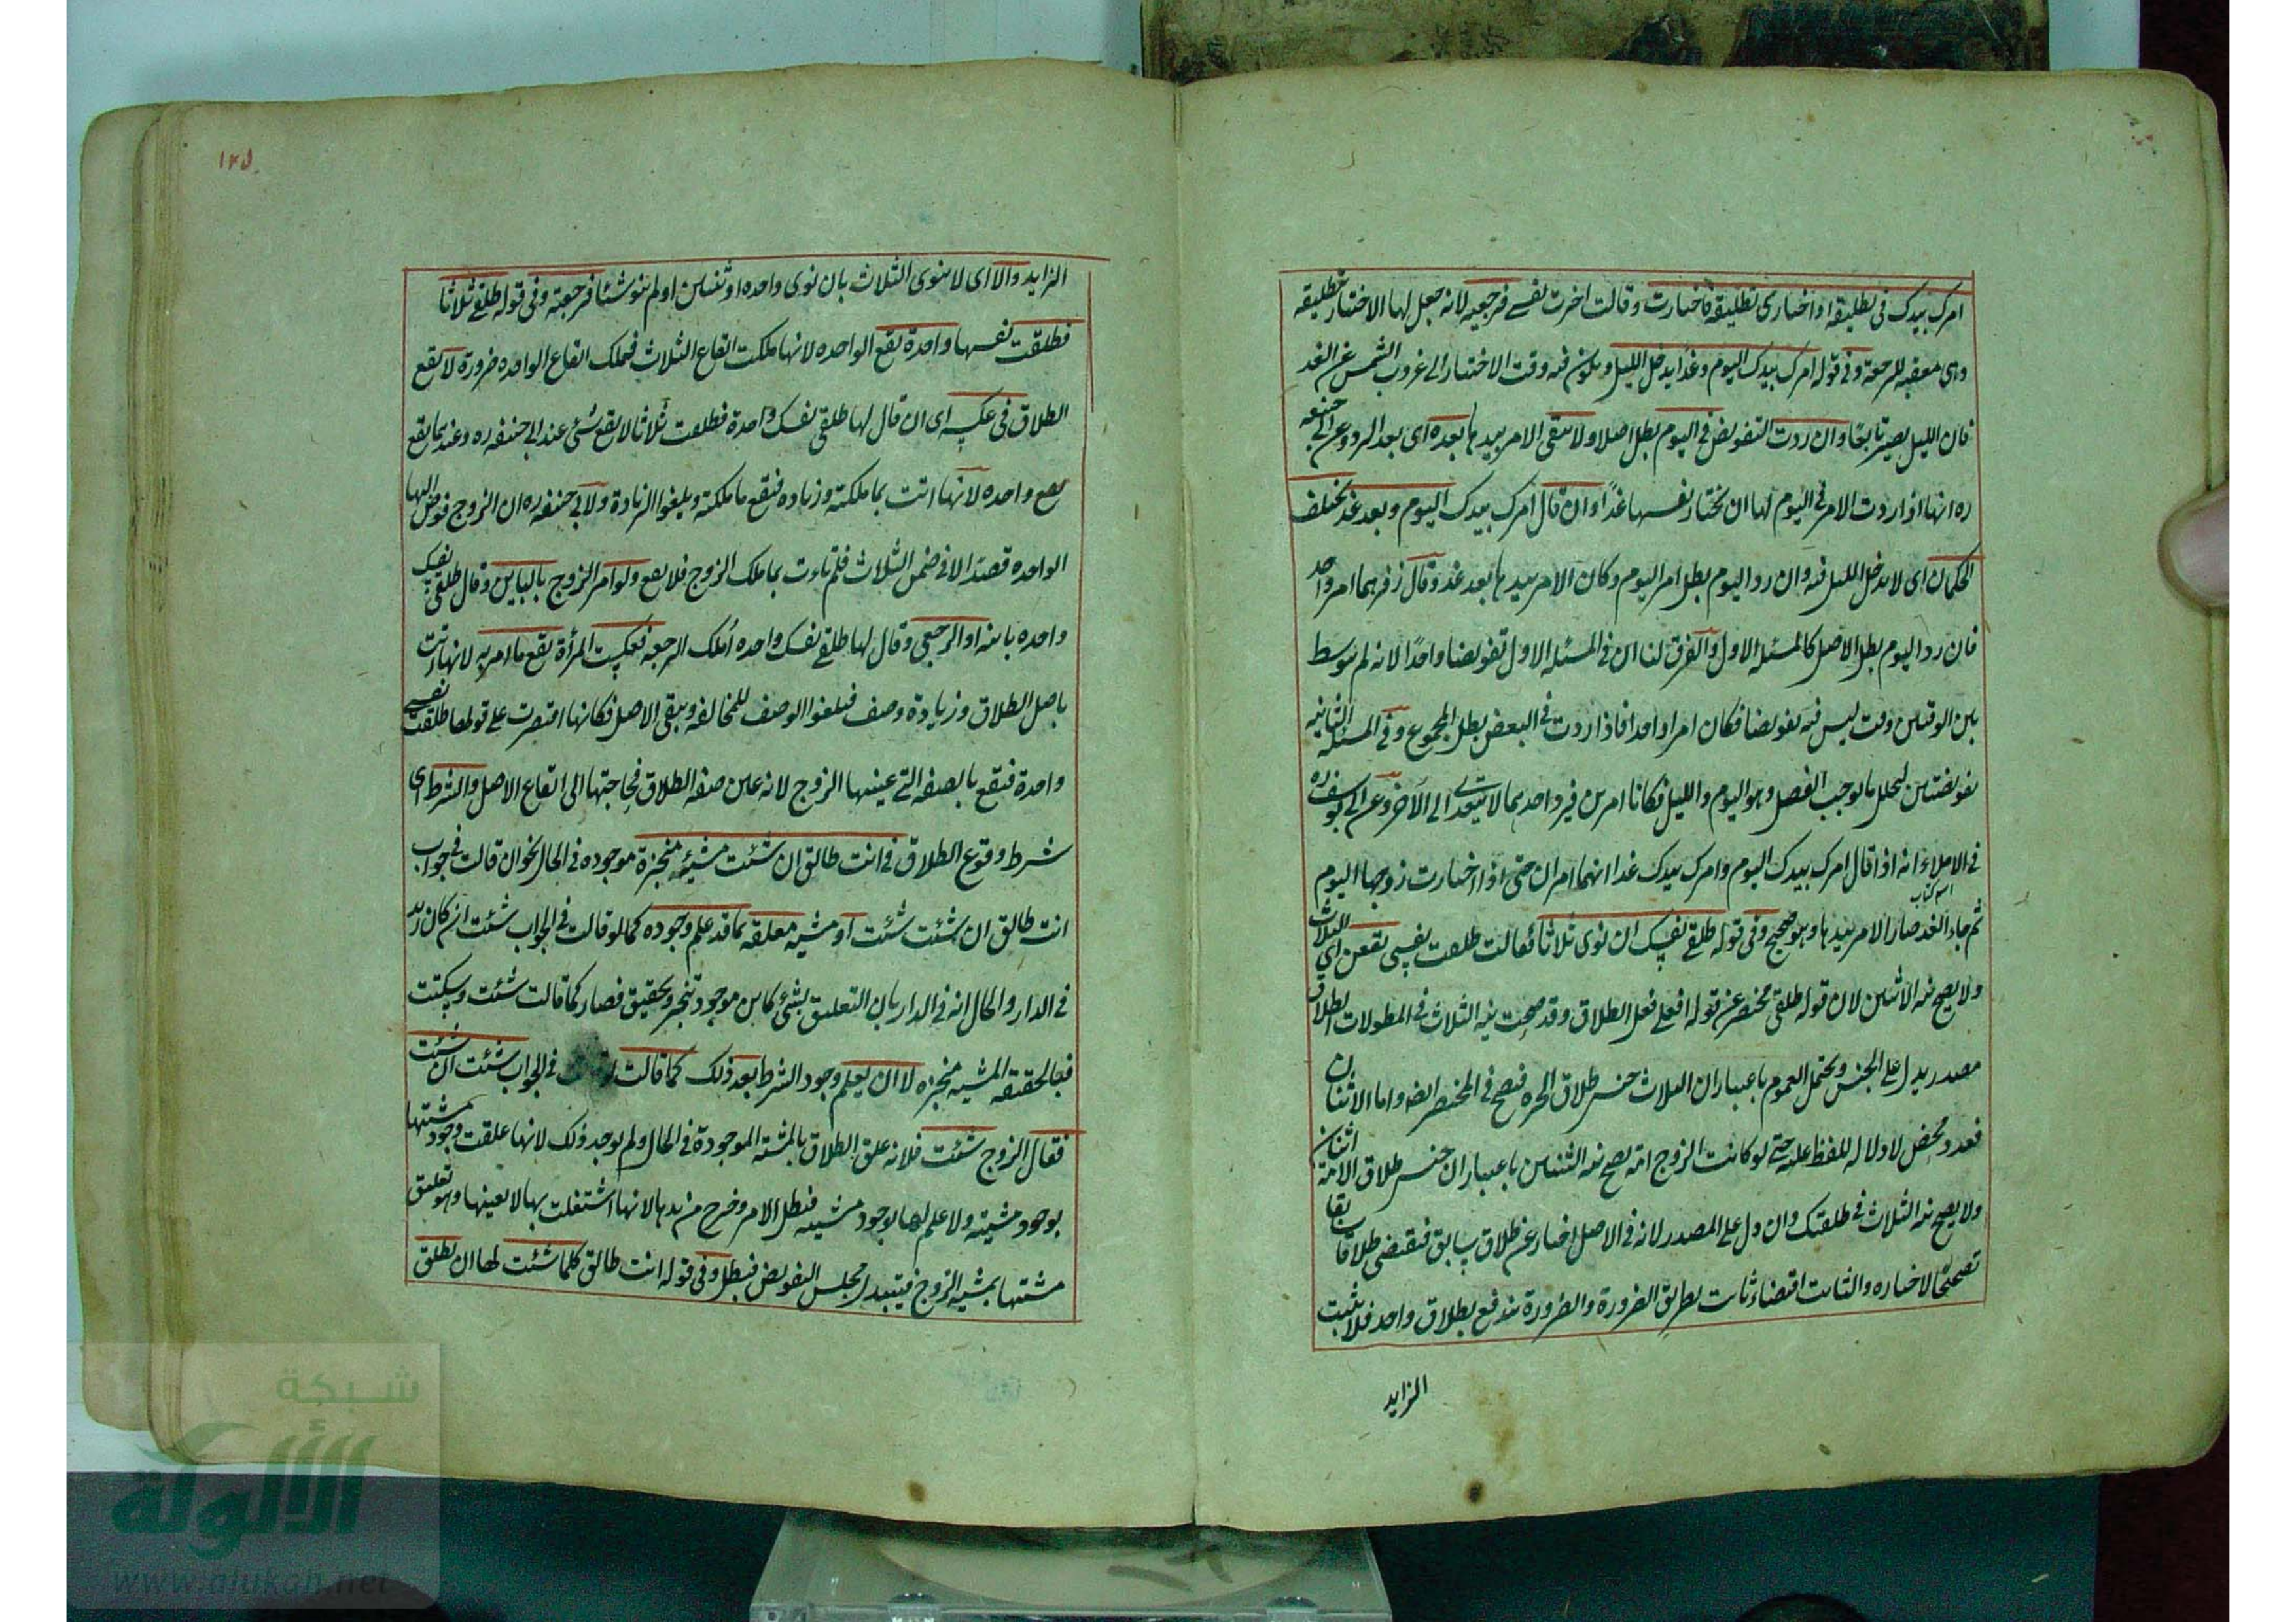 امرك بيدك فى تطليقة او اختارى تطليقة فاختارت وقالت اخترت نفسى فرجعية لانه جعل لها الاختيار تطليقة
وهى معقبة للرجعة وفى قوله امرك بيدك اليوم وغدا يدخل الليل ويكون فيه وقت الاختيار الى غروب الشمس عن الغد
فان الليل يصير تابعا وان ردت التفويض فى اليوم بطل اصلا ولا يبقى الامر بيدها بعده اى بعد الرد وعن ابى حنيفه
ره انها اذا ردت الامر فى اليوم لها ان تختار نفسها غدا وان قال امرك بيدك اليوم وبعد غد يختلف
الحكمان اى لا يدخل الليل فيه وان رد اليوم بطل امر اليوم وكان الامر بيدها بعد غد وقال زفر هما امر واحد
فان رد اليوم بطل الاصل كالمسئله الاول والفرق لنا ان فى المسئله الاول تفويضا واحدا لانه لم يتوسط
بين الوقتين وقت ليس فيه تفويضا فكان امرا واحدا فاذا ردت فى البعض بطل المجموع وفى المسئله الثانيه
تفويضتين لتخلل ما يوجب الفصل وهو اليوم والليل فكانا امرين فيرد احدهما لا يتعدى الى الآخر وعن ابى يوسف ره
فى الاملاء انه اذا قال امرك بيدك اليوم وامرك بيدك غدا انهما امران حتى اذا اختارت زوجها اليوم
اسم كتاب
ثم جاء الغد صار الامر بيدها وهو صحيح وفى قوله طلقى نفسك ان نوى ثلاثا فقالت طلقت نفسى يقعن اى الثلاث
ولا يصح نية الاثنين لان قوله طلقى مختصر عن قوله افعلى فعل الطلاق وقد صحت نية الثلاث فى المطولات الطلاق
مصدر يدل على الجنس ويحتمل العموم باعتبار ان الثلاث جنس طلاق الحره فيصح فى المختصر ايضا واما الاثنان
فعدد محض لا دلاله للفظ عليه حتى لو كانت الزوج امة يصح نية الثنتين باعتبار ان جنس طلاق الامة اثنان
ولا يصح نية الثلاث فى طلقتك وان دل على المصدر لانه فى الاصل اخبار عن طلاق سابق فيقتضى طلاقا سابقا
تصحيحا لاخباره والثابت اقتضاء ثابت بطريق الضرورة والضرورة تندفع بطلاق واحد فلا يثبت
الزايد
١٢٥
الزايد والا اى لا ينوى الثلاث بان نوى واحده او ثنتين او لم ينو شيئا فرجعية وفى قوله طلقى ثلاثا
فطلقت نفسها واحدة تقع الواحده لانها ملكت ايقاع الثلاث فيملك ايقاع الواحده ضرورة لا يقع
الطلاق فى عكسه اى ان قال لها طلقى نفسك واحدة فطلقت ثلاثا لا يقع شئ عند ابى حنيفه ره وعندهما يقع
يقع واحده لانها اتت بما ملكته وزياده فيقع ما ملكته ويلغوا الزيادة ولابى حنيفه ره ان الزوج فوض اليها
الواحده قصدا لا فى ضمن الثلاث فلم تاءت بما ملك الزوج فلا يقع ولو امر الزوج بالباين وقال طلقى نفسك
واحده باينه او الرجعى وقال لها طلقى نفسك واحده املك الرجعه فعكست المرأة يقع ما امر به لانها اتت
باصل الطلاق وزيادة وصف فيلغوا الوصف للمخالفه ويبقى الاصل فكانها اقتصرت على قولها طلقت نفسى
واحدة فيقع بالصفه التى عينها الزوج لانه عين صفه الطلاق فحاجتها الى ايقاع الاصل والشرط اى
شرط وقوع الطلاق فى انت طالق ان شئت مشيئه منجزة موجوده فى الحال نحو ان قالت فى جواب
انت طالق ان شئت شئت او مشيه معلقه بما قد علم وجوده كما لو قالت فى الجواب شئت ان كان زيد
فى الدار والحال انه فى الدار بان التعليق بشئ كاين موجود تنجز وتحقيق فصار كما قالت شئت وسكتت
فبالحقيقه المشيه منجزه لا ان يعلم وجود الشرط بعد ذلك كما قالت فى الجواب شئت ان شئت
فقال الزوج شئت فلانه علق الطلاق بالمشئة الموجودة فى الحال ولم يوجد ذلك لانها علقت وجود مشيتها
بوجود مشيته ولا علم لها بوجود مشيته فبطل الامر وخرج من يدها لانها اشتغلت بها لا يعينها وهو تعليق
مشيتها بمشيه الزوج فيتبدل مجلس التفويض فبطل وفى قوله انت طالق كلما شئت لها ان تطلق
شبكة
الألوكة
www.alukah.net